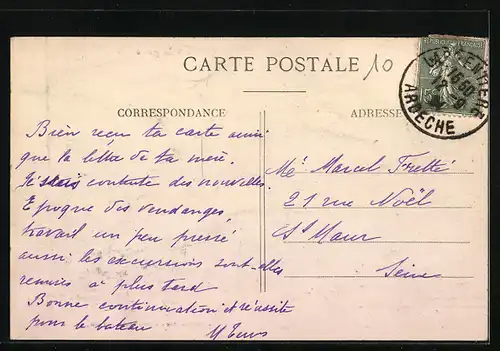 CARTE POSTALE
10
RÉPUBLIQUE FRANÇAISE
LARGENTIÈRE
15
ARDÈCHE
CORRESPONDANCE
ADRESSE
Bien reçu ta carte ainsi
que la lettre de ta mère.
Je suis contente des nouvelles.
Epoque des vendanges,
travail un peu pressé
aussi les excursions sont-elles
remises à plus tard
Bonne continuation et réussite
pour le bateau
Mr Marcel
21 rue Noël
St Maur
Seine